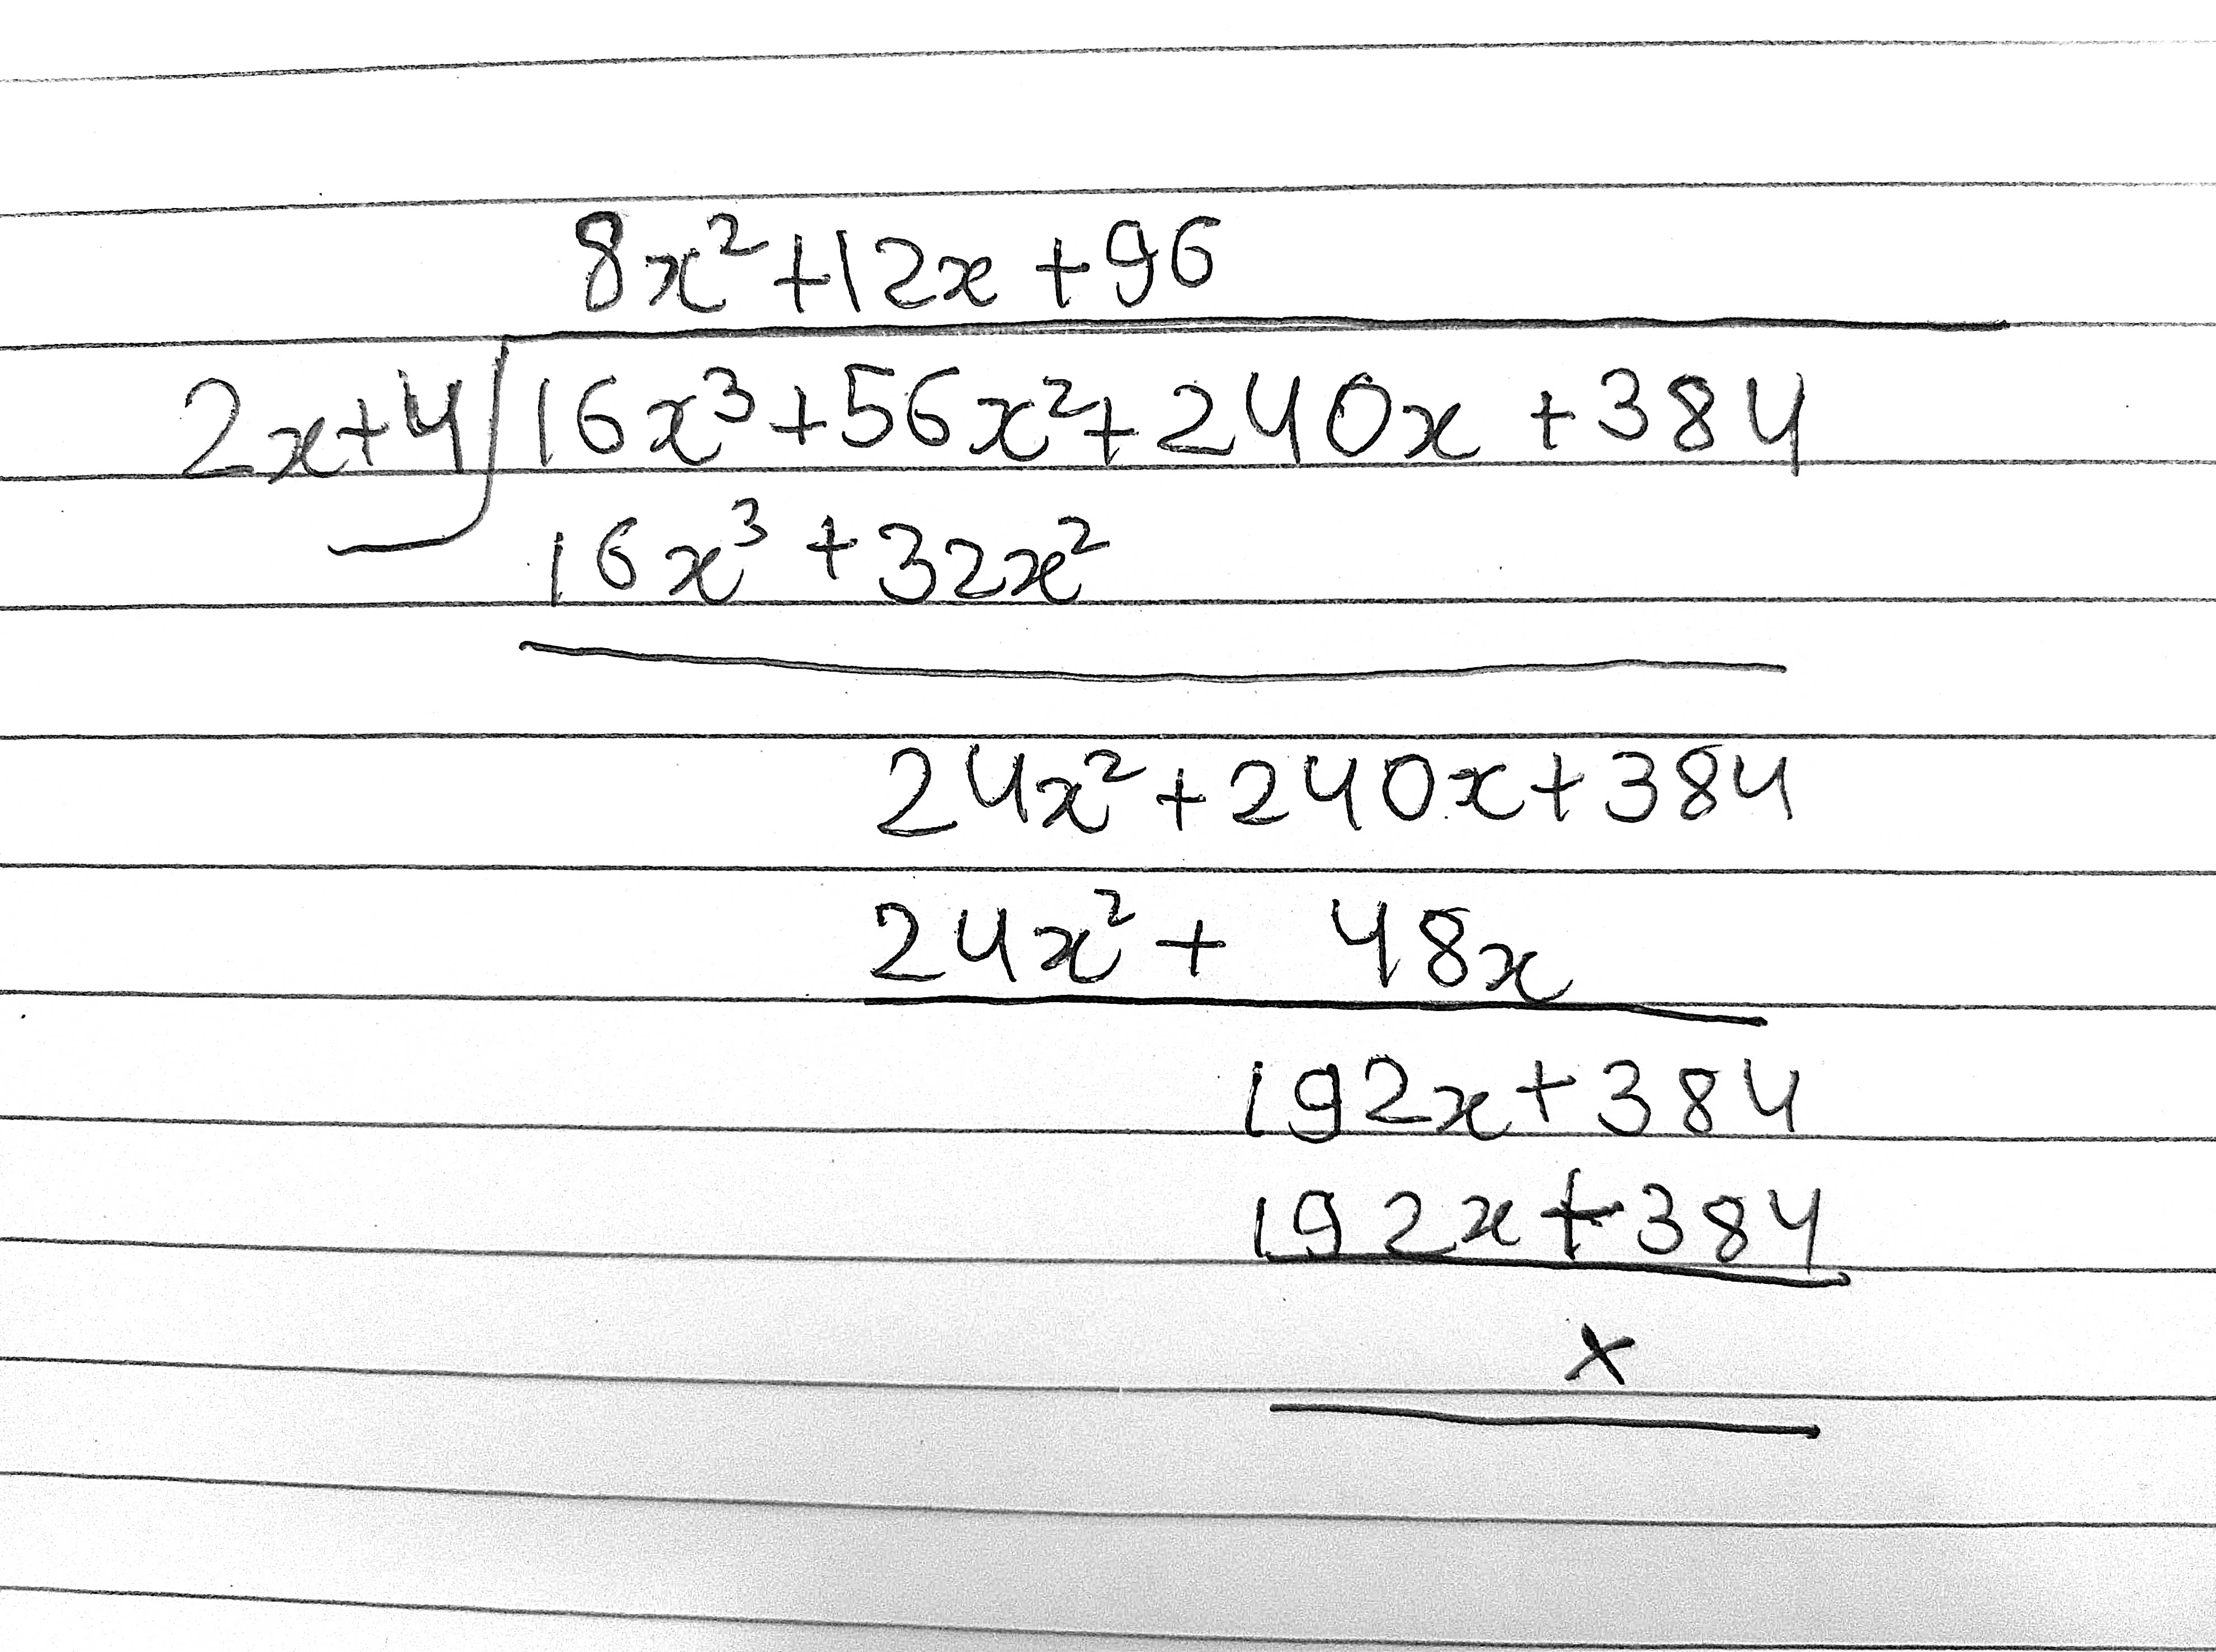 8x² + 12x + 96
2x+4 ) 16x³ + 56x² + 240x + 384
16x³ + 32x²
24x² + 240x + 384
24x² + 48x
192x + 384
192x + 384
x